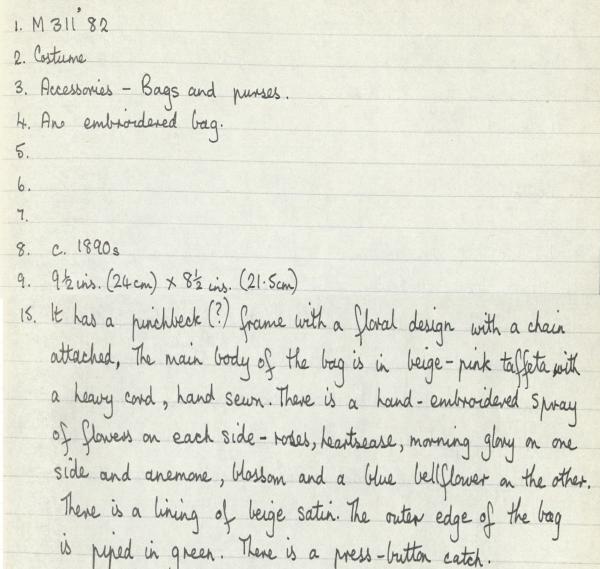 1. M 311' 82
2. Costume
3. Accessories - Bags and purses.
4. An embroidered bag.
5.
6.
7.
8. c. 1890s
9. 9½ ins. (24cm) × 8½ ins. (21.5cm)
15. It has a pinchbeck (?) frame with a floral design with a chain
attached, The main body of the bag is in beige-pink taffeta with
a heavy cord, hand sewn. There is a hand-embroidered spray
of flowers on each side - roses, heartsease, morning glory on one
side and anemone, blossom and a blue bellflower on the other.
There is a lining of beige satin. The outer edge of the bag
is piped in green. There is a press-button catch.